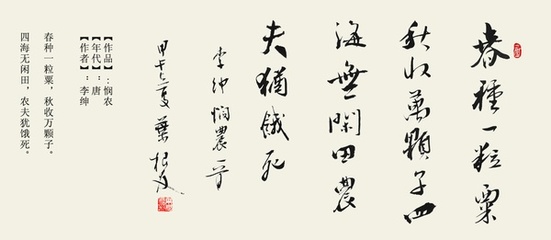 春種一粒粟
秋收萬顆子四
海無閑田農
夫猶餓死
李紳憫農一首
甲午之夏葉根友
【作品】:悯农
【年代】:唐
【作者】:李绅
春种一粒粟，秋收万颗子。
四海无闲田，农夫犹饿死。